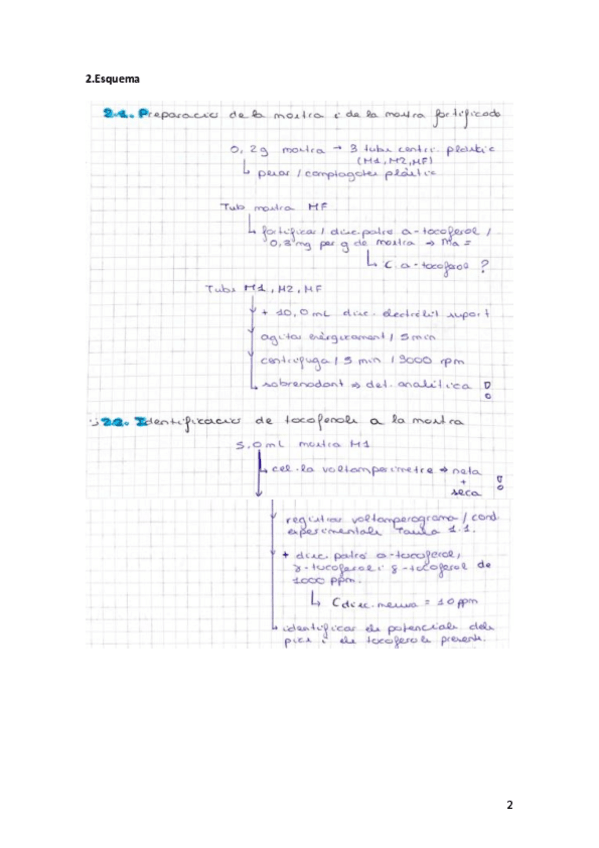 2.Esquema
2.1. Preparació de la mostra i de la mostra fortificada
0,2g mostra → 3 tubs centri. plàstic
(M1, M2, MF)
pesar / comptagotes plàstic
Tub mostra MF
fortificar / disc. patró α-tocoferol /
0,8 mg per g de mostra → ma =
C. α-tocoferol ?
Tubs M1, M2, MF
+ 10,0 mL disc. electròlit suport
agitar enèrgicament / 5 min
centrífuga / 5 min / 9000 rpm
sobrenedant → det. analítica !
2.2. Identificació de tocoferols a la mostra
5.0 mL mostra M1
cel·la voltamperímetre → neta
+
seca !
registrar voltamperograma / cond.
experimentals Taula 1.1.
+ disc. patró α-tocoferol,
γ-tocoferol i δ-tocoferol de
1000 ppm.
C disc. mescla = 10 ppm
identificar els potencials dels
pics i els tocoferols presents.
2